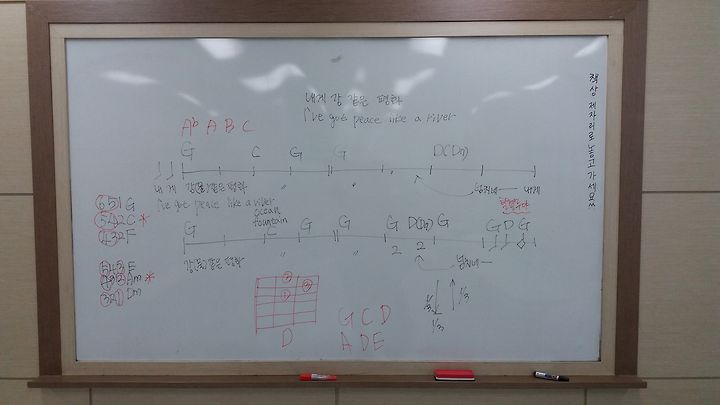 내게 강 같은 평화
I've got peace like a river
Ab A B C
G C G G D(D7)
내게 강(물)같은평화 〃 〃 넘치네 내게
I've got peace like a river
ocean
fountain
G C G G G D(D7) G G D G
2 2
강(물)같은평화 〃 〃 넘치네
651G
542C *
432F
543E
433Am *
321Dm
2
3
1
D
G C D
A D E
1/3 1/3
1/3
책상 제자리로 놓고 가세요